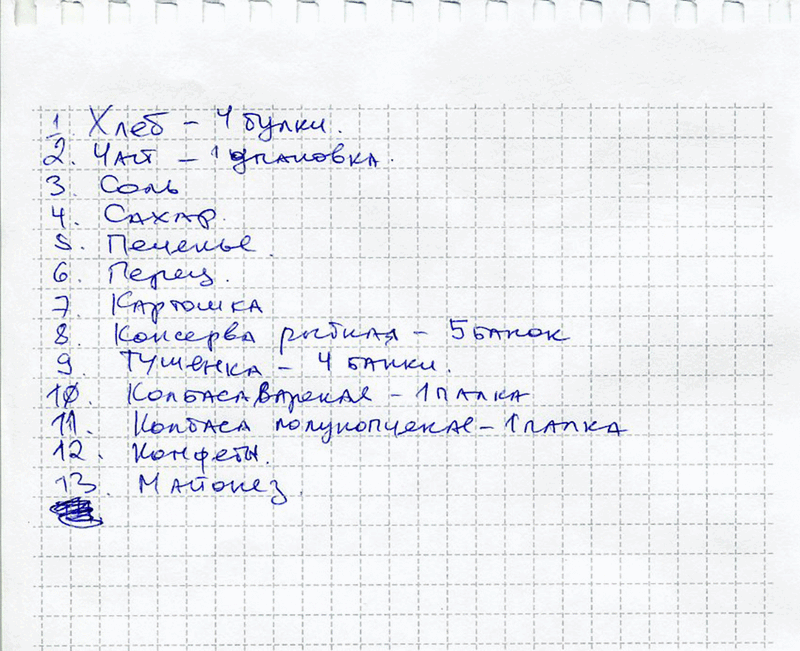 1. Хлеб – 4 булки.
2. Чай – 1 упаковка.
3. Соль
4. Сахар.
5. Печенье.
6. Перец.
7. Картошка
8. Консерва рыбная – 5 банок
9. Тушенка – 4 банки.
10. Колбаса вареная – 1 палка
11. Колбаса полукопченая – 1 палка
12. Конфеты.
13. Майонез.